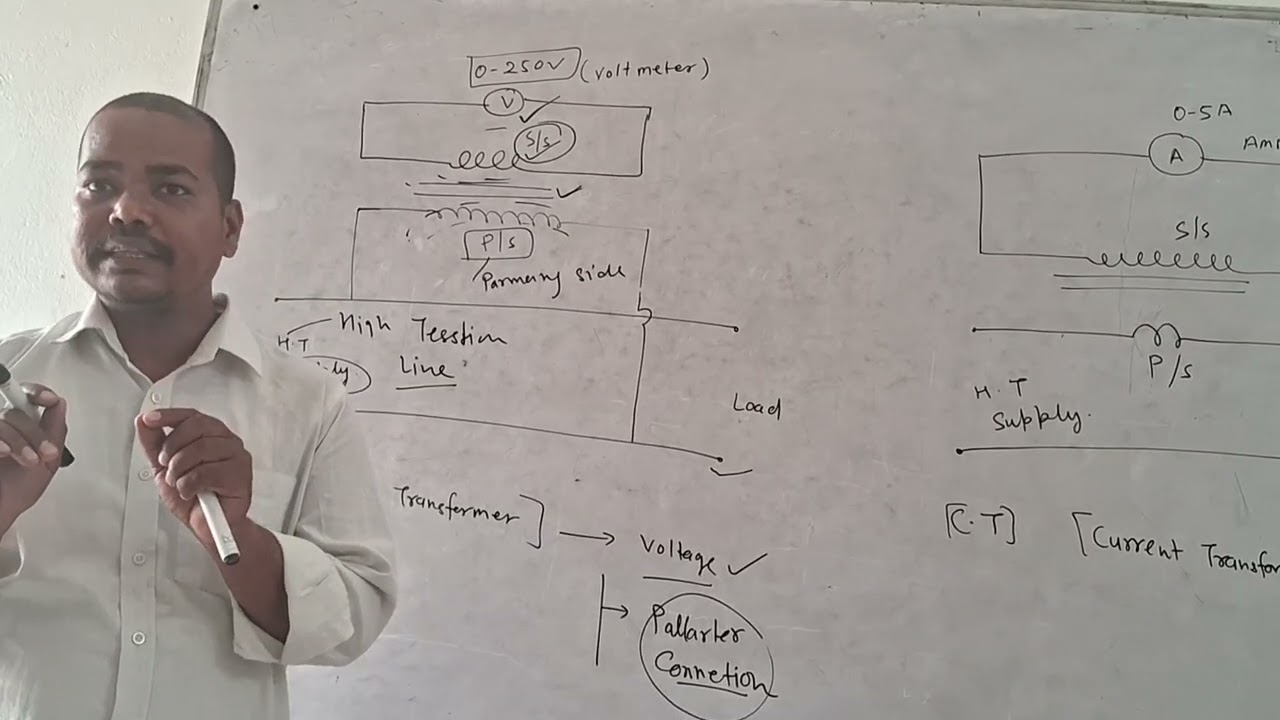 0-250V (voltmeter)
V
S/s
P/s
Parmering side
High Tesstion
H.T
Line
Load
Transformer] → Voltage ✓
→ Pallarter
Connetion
0-5A
A
S/s
P/s
H.T
Supply.
[C.T] [Current